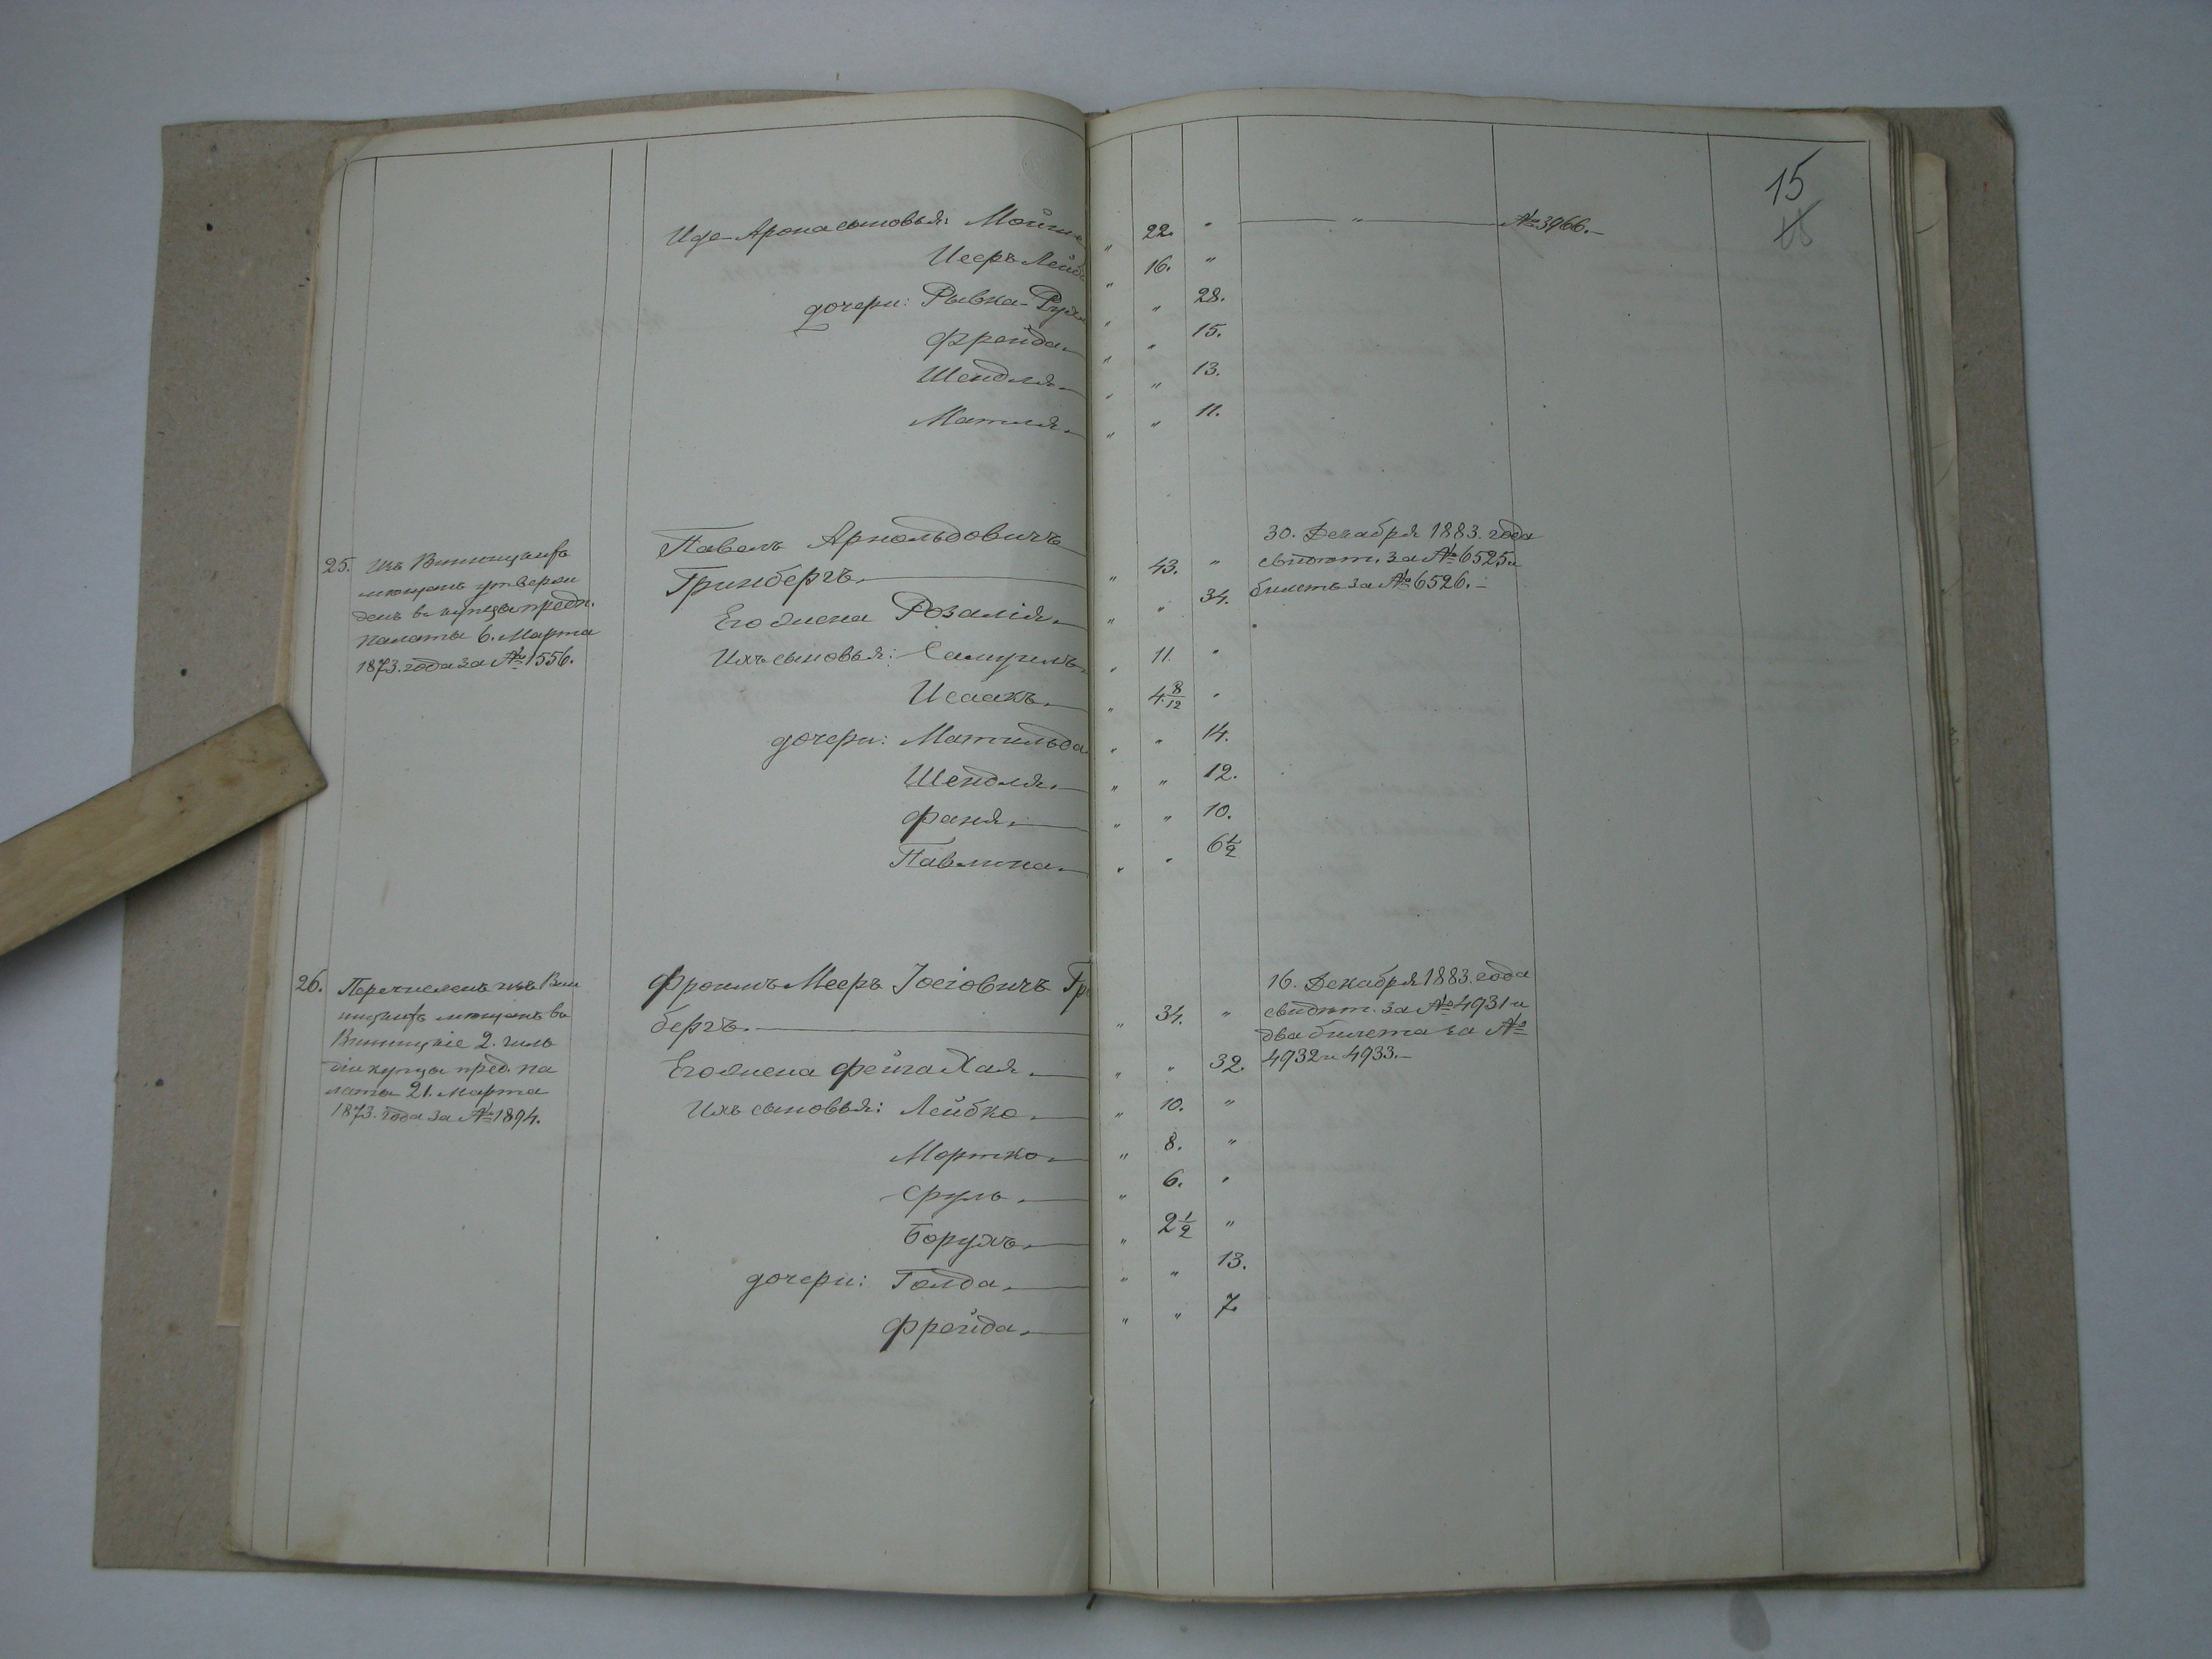 15
Иде-Арона сыновья: Мойше „ 22. „ — „ — № 3966.—
Исеръ Лейб „ 16. „
дочери: Рывка-Рухл „ „ 28.
Фрейда.— „ „ 15.
Шендля.— „ „ 13.
Матля.— „ „ 11.
25. Изъ Винницкихъ
мещанъ утверж
денъ въ купцы предп.
палаты 6. Марта
1873. года за № 1556.
Павелъ Арнольдовичъ
Гринбергъ.— „ 43. „
Его жена Розалія.— „ „ 34.
Ихъ сыновья: Самуилъ. „ 11. „
Исаакъ.— „ 4 8/12 „
дочери: Матильда „ „ 14.
Шендля.— „ „ 12.
Фаня.— „ „ 10.
Павлина.— „ „ 6 1/2
30. Декабря 1883. года
свидѣт. за № 6525 и
билетъ за № 6526.—
26. Перечисленъ изъ Вин
ницкихъ мещанъ въ
Винницкіе 2. гиль
діи купцы пред. па
латы 21. Марта
1873. года за № 1894.
Фроимъ Мееръ Іосіовичъ Гр
бергъ.— „ 34. „
Его жена Фейга Хая.— „ „ 32.
Ихъ сыновья: Лейбко.— „ 10. „
Мортко.— „ 8. „
Сруль.— „ 6. „
Борухъ.— „ 2 1/2 „
дочери: Голда.— „ „ 13.
Фрейда.— „ „ 7.
16. Декабря 1883. года
свидѣт. за № 4931 и
два билета за №
4932 и 4933.—